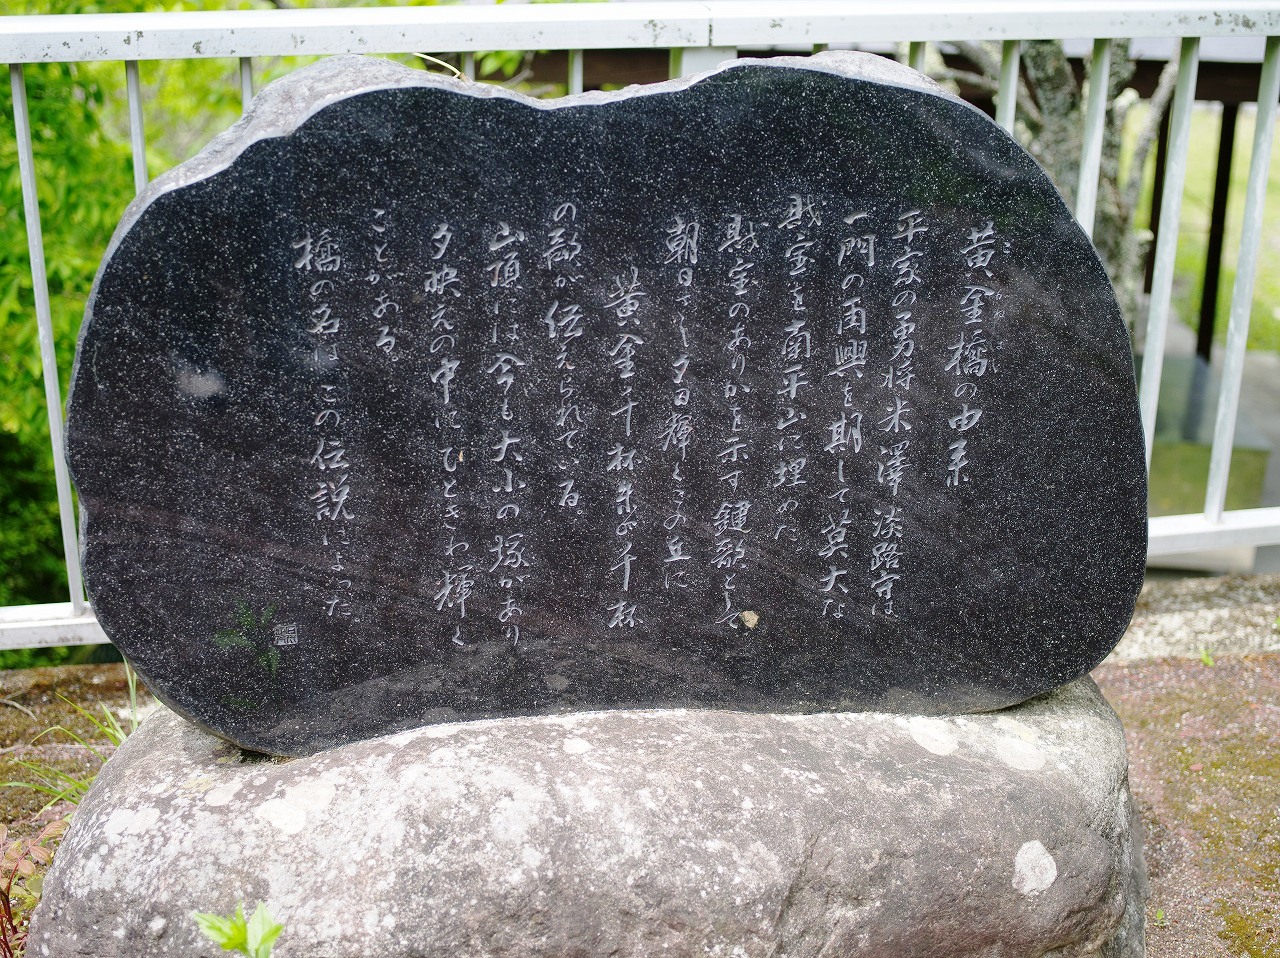 こがねばし
黄金橋の由来
平家の勇将米澤淡路守は
一門の再興を期して莫大な
財宝を南平山に埋めた
財宝のありかを示す鍵歌として
朝日さし夕日輝くこの丘に
黄金千杯朱が千杯
の歌が伝えられている。
山頂には今も大小の塚があり
夕映えの中にひときわ輝く
ことがある。
橋の名は この伝説によった。